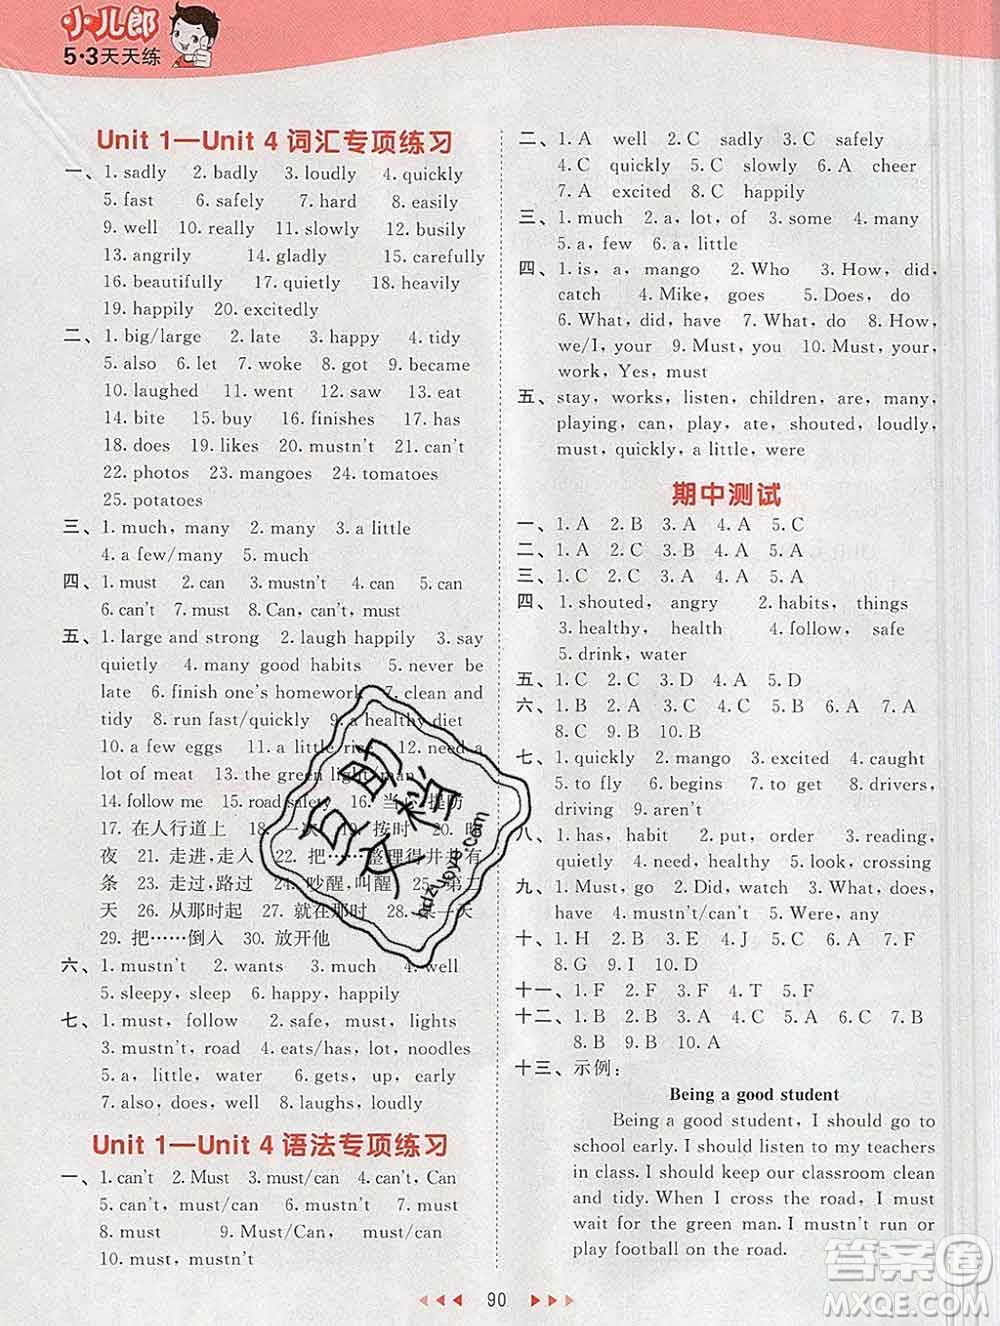 小儿郎
5·3天天练
Unit 1—Unit 4 词汇专项练习
一、1. sadly 2. badly 3. loudly 4. quickly
5. fast 6. safely 7. hard 8. easily
9. well 10. really 11. slowly 12. busily
13. angrily 14. gladly 15. carefully
16. beautifully 17. quietly 18. heavily
19. happily 20. excitedly
二、1. big/large 2. late 3. happy 4. tidy
5. also 6. let 7. woke 8. got 9. became
10. laughed 11. went 12. saw 13. eat
14. bite 15. buy 16. finishes 17. has
18. does 19. likes 20. mustn't 21. can't
22. photos 23. mangoes 24. tomatoes
25. potatoes
三、1. much, many 2. many 3. a little
4. a few/many 5. much
四、1. must 2. can 3. mustn't 4. can 5. can
6. can't 7. must 8. Can, can't, must
五、1. large and strong 2. laugh happily 3. say
quietly 4. many good habits 5. never be
late 6. finish one's homework 7. clean and
tidy 8. run fast/quickly 9. a healthy diet
10. a few eggs 11. a little rice 12. need a
lot of meat 13. the green light man
14. follow me 15. road safety 16. 当心,提防
17. 在人行道上 18. 一次 19. 按时 20. 昨
夜 21. 走进,走入 22. 把……整理得井井有
条 23. 走过,路过 24. 吵醒,叫醒 25. 第二
天 26. 从那时起 27. 就在那时 28. 某一天
29. 把……倒入 30. 放开他
六、1. mustn't 2. wants 3. much 4. well
5. sleepy, sleep 6. happy, happily
七、1. must, follow 2. safe, must, lights
3. mustn't, road 4. eats/has, lot, noodles
5. a, little, water 6. gets, up, early
7. also, does, well 8. laughs, loudly
Unit 1—Unit 4 语法专项练习
一、1. can't 2. Must 3. must/can 4. can't, Can
5. can't, must/can 6. mustn't 7. must
8. must 9. Must/Can, must/can
10. must, mustn't
二、1. A well 2. C sadly 3. C safely
4. C quickly 5. C slowly 6. A cheer
7. A excited 8. C happily
三、1. much 2. a, lot, of 3. some 4. many
5. a, few 6. a, little
四、1. is, a, mango 2. Who 3. How, did,
catch 4. Mike, goes 5. Does, do
6. What, did, have 7. What, do 8. How,
we/I, your 9. Must, you 10. Must, your,
work, Yes, must
五、stay, works, listen, children, are, many,
playing, can, play, ate, shouted, loudly,
must, quickly, a little, were
期中测试
一、1. A 2. B 3. A 4. A 5. C
二、1. A 2. C 3. B 4. A 5. A
三、1. C 2. C 3. B 4. C 5. A
四、1. shouted, angry 2. habits, things
3. healthy, health 4. follow, safe
5. drink, water
五、1. C 2. C 3. D 4. A 5. D
六、1. B 2. A 3. C 4. B 5. C 6. A 7. A
8. C 9. B 10. B
七、1. quickly 2. mango 3. excited 4. caught
5. to fly 6. begins 7. to get 8. drivers,
driving 9. aren't
八、1. has, habit 2. put, order 3. reading,
quietly 4. need, healthy 5. look, crossing
九、1. Must, go 2. Did, watch 3. What, does,
have 4. mustn't/can't 5. Were, any
十、1. H 2. B 3. E 4. J 5. C 6. A 7. F
8. G 9. I 10. D
十一、1. F 2. F 3. F 4. T 5. F
十二、1. B 2. B 3. A 4. A 5. C 6. A 7. B
8. B 9. B 10. A
十三、示例:
Being a good student
Being a good student, I should go to
school early. I should listen to my teachers
in class. I should keep our classroom clean
and tidy. When I cross the road, I must
wait for the green man. I mustn't run or
play football on the road.
90
答案圈
MXQE.COM